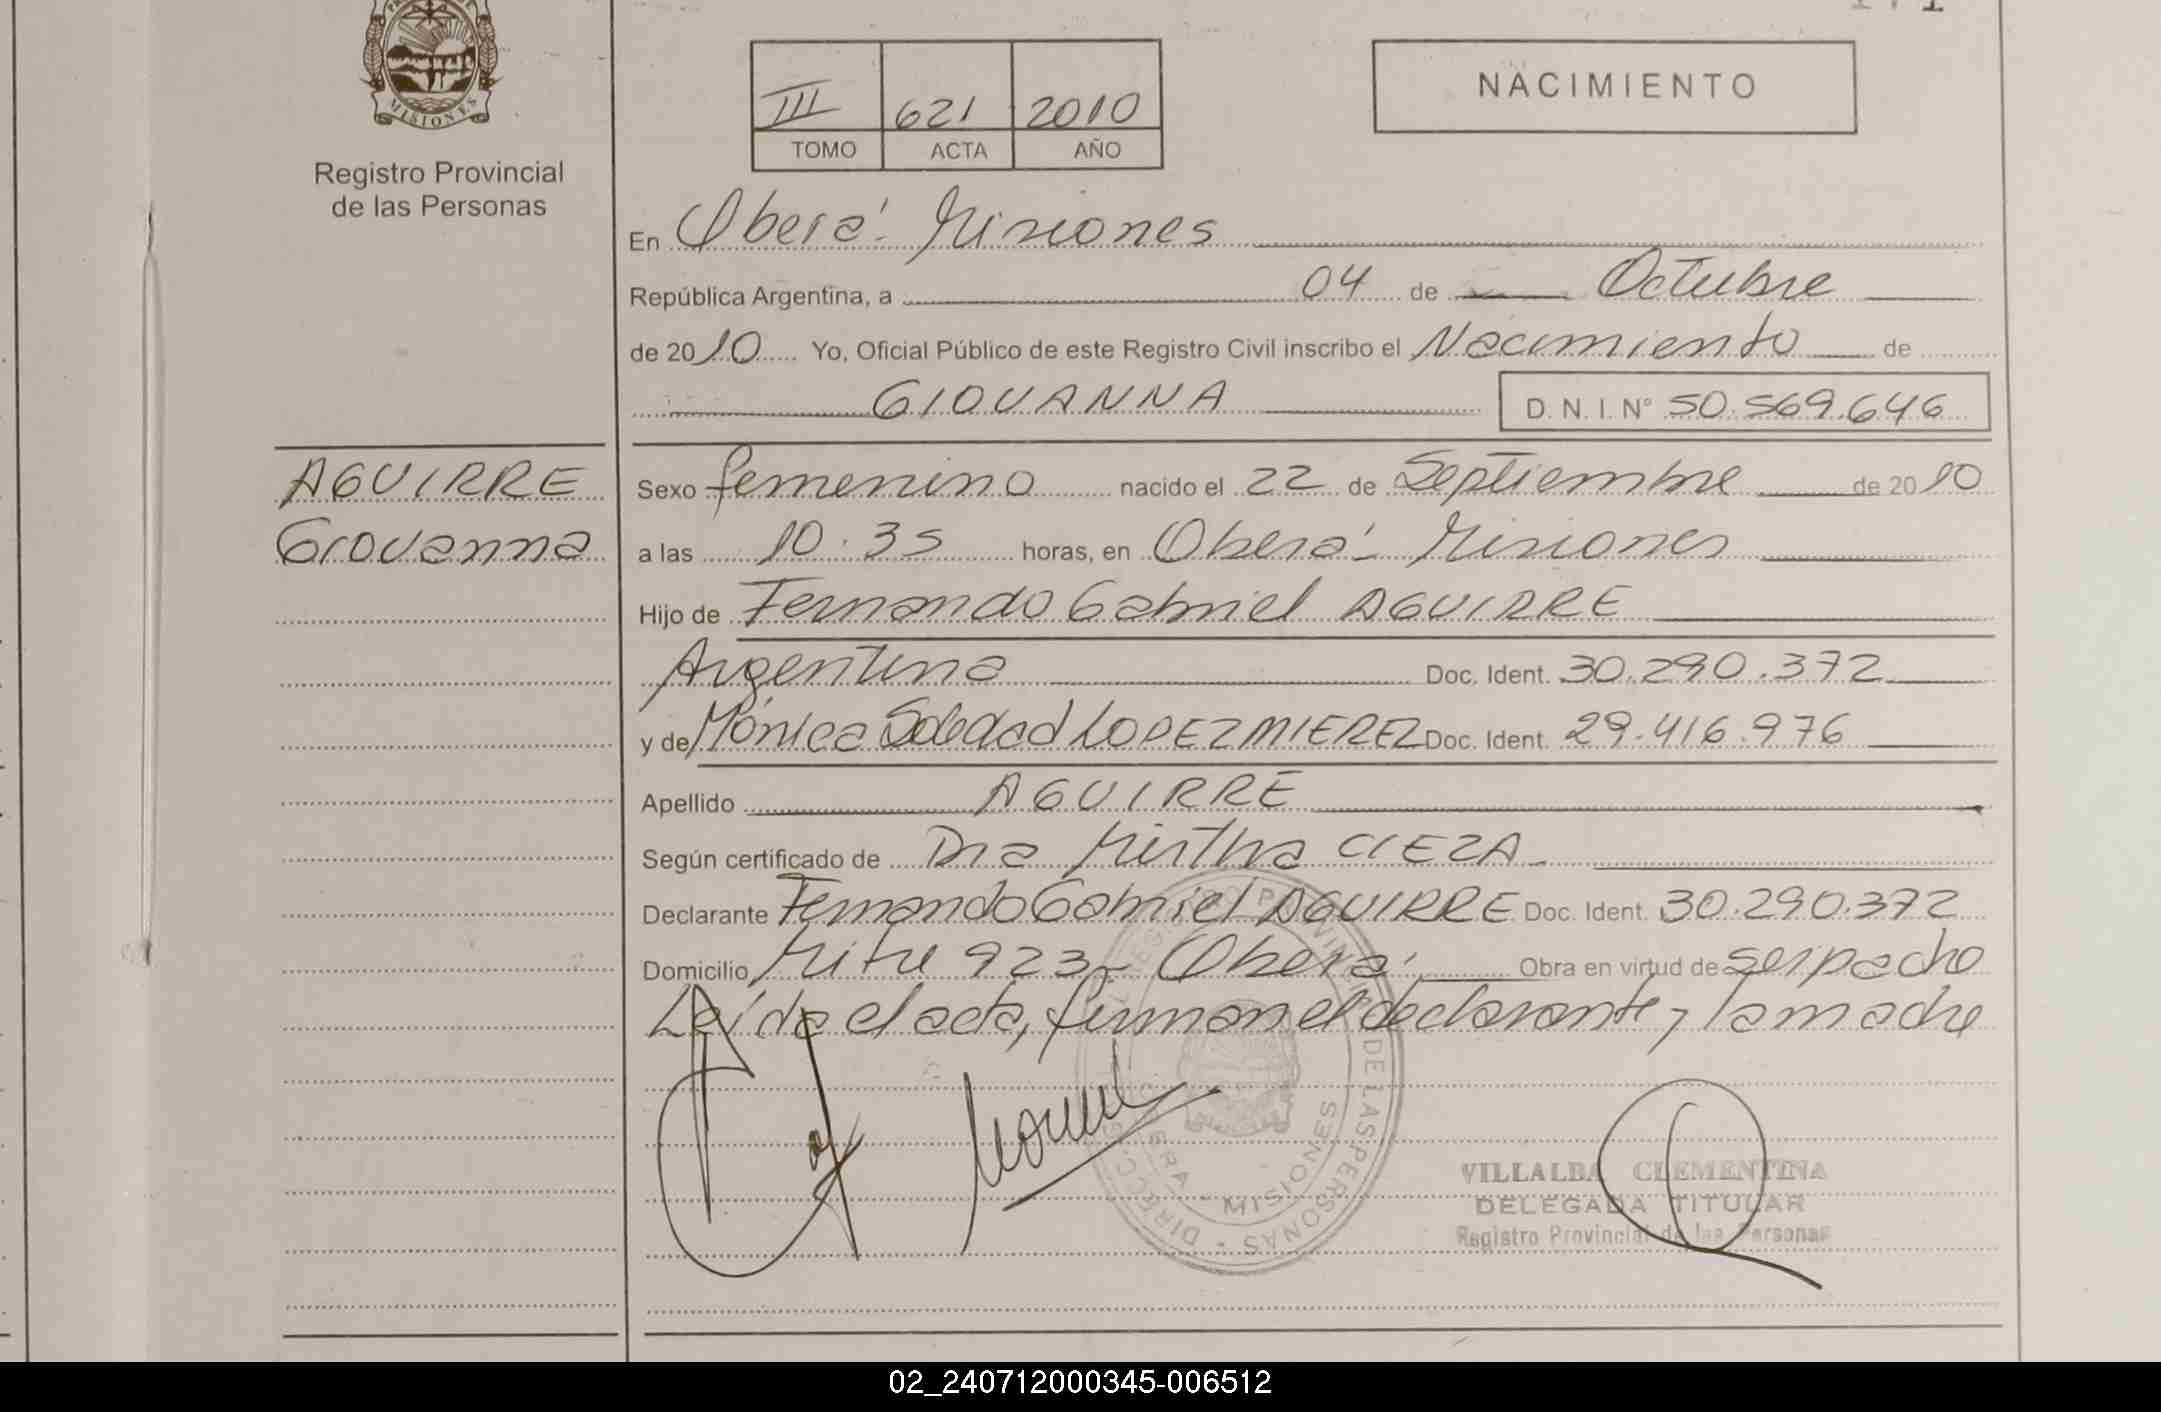 MISIONES
Registro Provincial
de las Personas
III 621 2010
TOMO ACTA AÑO
NACIMIENTO
En Oberá - Misiones
República Argentina, a 04 de Octubre
de 2010 Yo, Oficial Público de este Registro Civil inscribo el Nacimiento de
GIOVANNA D. N. I. N° 50.569.646
AGUIRRE
Giovanna
Sexo femenino nacido el 22 de Septiembre de 2010
a las 10.35 horas, en Oberá - Misiones
Hijo de Fernando Gabriel AGUIRRE
Argentina Doc. Ident. 30.290.372
y de Mónica Soledad LOPEZ MIEREZ Doc. Ident. 29.416.976
Apellido AGUIRRE
Según certificado de Dra Mirtha CIEZA
Declarante Fernando Gabriel AGUIRRE Doc. Ident. 30.290.372
Domicilio Mitre 923 - Oberá Obra en virtud de serpacho
Leída el acta, firman el declarante y la madre
DE LAS PERSONAS
MISIONES
VILLALBA CLEMENTINA
DELEGADA TITULAR
Registro Provincial de las Personas
02_240712000345-006512